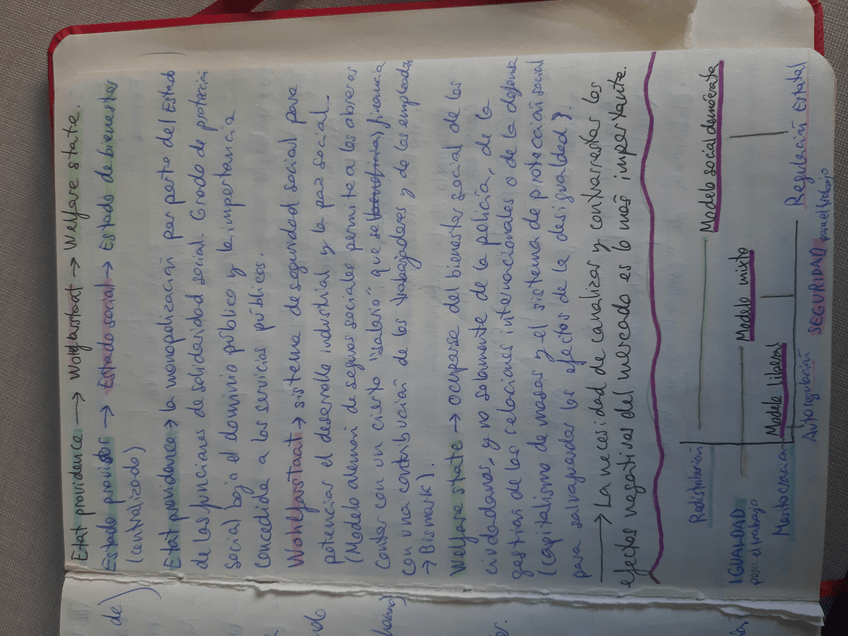 Etat providence → Wohlfarstaat → Welfare state.
Estado provisor → Estado social → Estado de bienestar
(centralizado)
Etat providence → la monopolización por parte del Estado
de las funciones de solidaridad social. Grado de protección
social bajo el dominio público y la importancia
concedida a los servicios públicos.
Wohlfarstaat → sistema de seguridad social para
potenciar el desarrollo industrial y la paz social.
(Modelo alemán de seguros sociales permite a los obreros
contar con un cierto "salario" que se financia
con una contribución de los trabajadores y de los empleados
→ Bismark).
Welfare state → ocuparse del bienestar social de los
ciudadanos, y no solamente de la policía, de la
gestión de las relaciones internacionales o de la defensa
(capitalismo de masas y el sistema de protección social
para salvaguardar los efectos de la desigualdad).
→ La necesidad de canalizar y contrarrestar los
efectos negativos del mercado es lo más importante.
Redistribución
Modelo socialdemócrata
IGUALDAD
para el trabajo
Modelo mixto
Meritocracia
Modelo liberal
Autorregulación
SEGURIDAD
para el trabajo
Regulación Estatal
de)